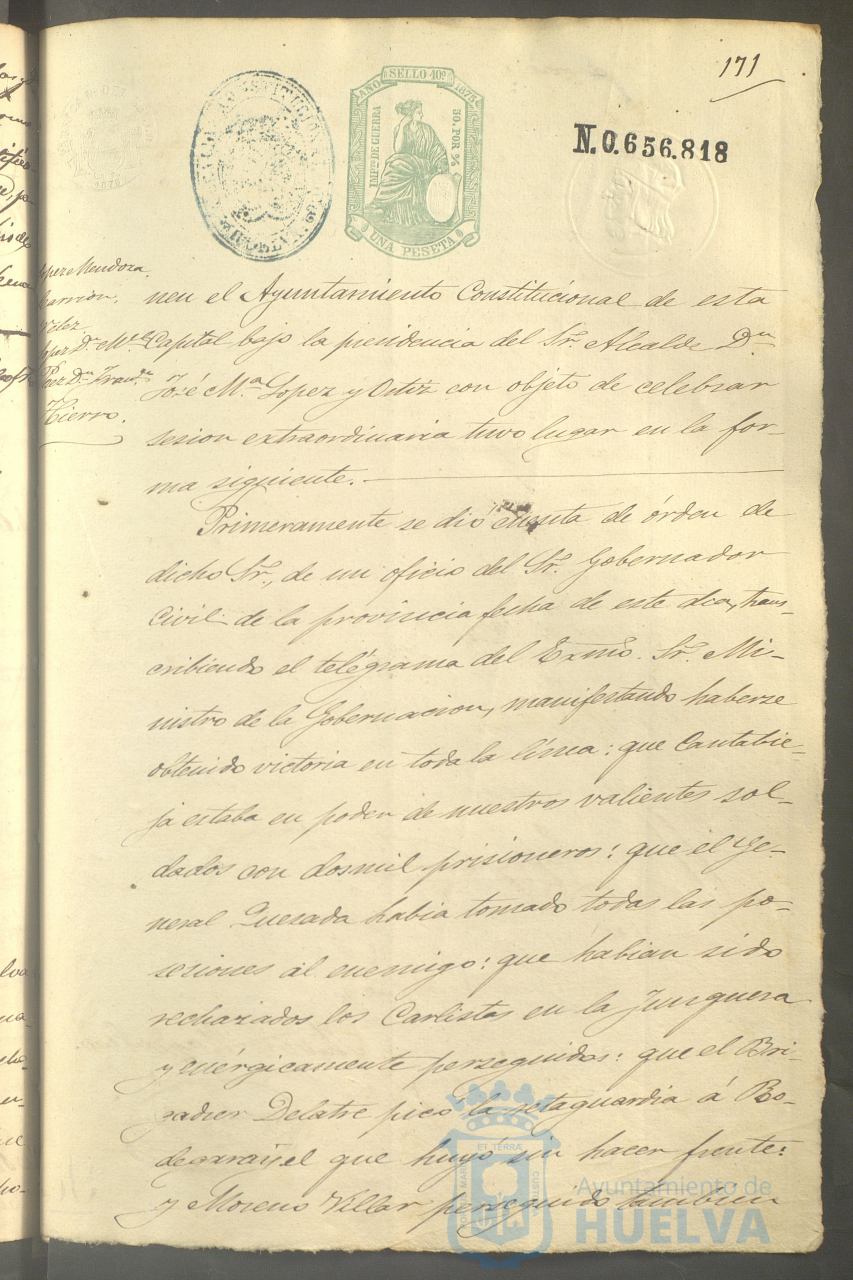 171
SELLO 10º
AÑO 1875
IMPTO DE GUERRA
50. POR %
UNA PESETA
N.0.656.818
Lopez Mendoza.
Garrion.
Velez
Lopez Dn. Mel.
Perez Dn. Franco.
Hierro.
nen el Ayuntamiento Constitucional de esta
Capital bajo la presidencia del Sr. Alcalde Dn
José Ma. Lopez y Ortiz con objeto de celebrar
sesion extraordinaria tuvo lugar en la for-
ma siguiente.
Primeramente se dió cuenta de órden de
dicho Sr., de un oficio del Sr. Gobernador
Civil de la provincia fecha de este dia, trans-
cribiendo el telégrama del Exmo. Sr. Mi-
nistro de la Gobernacion, manifestando haberse
obtenido victoria en toda la línea: que Cantabie-
ja estaba en poder de nuestros valientes sol-
dados con dosmil prisioneros: que el Ge-
neral Quesada habia tomado todas las po-
sesiones al enemigo: que habian sido
rechazados los Carlistas en la Junquera
y enérgicamente perseguidos: que el Bri-
gadier Delatre picó la retaguardia á Bo-
degarañel que huyó sin hacer frente:
y Moreno Villar perseguido tambien
Ayuntamiento de
HUELVA